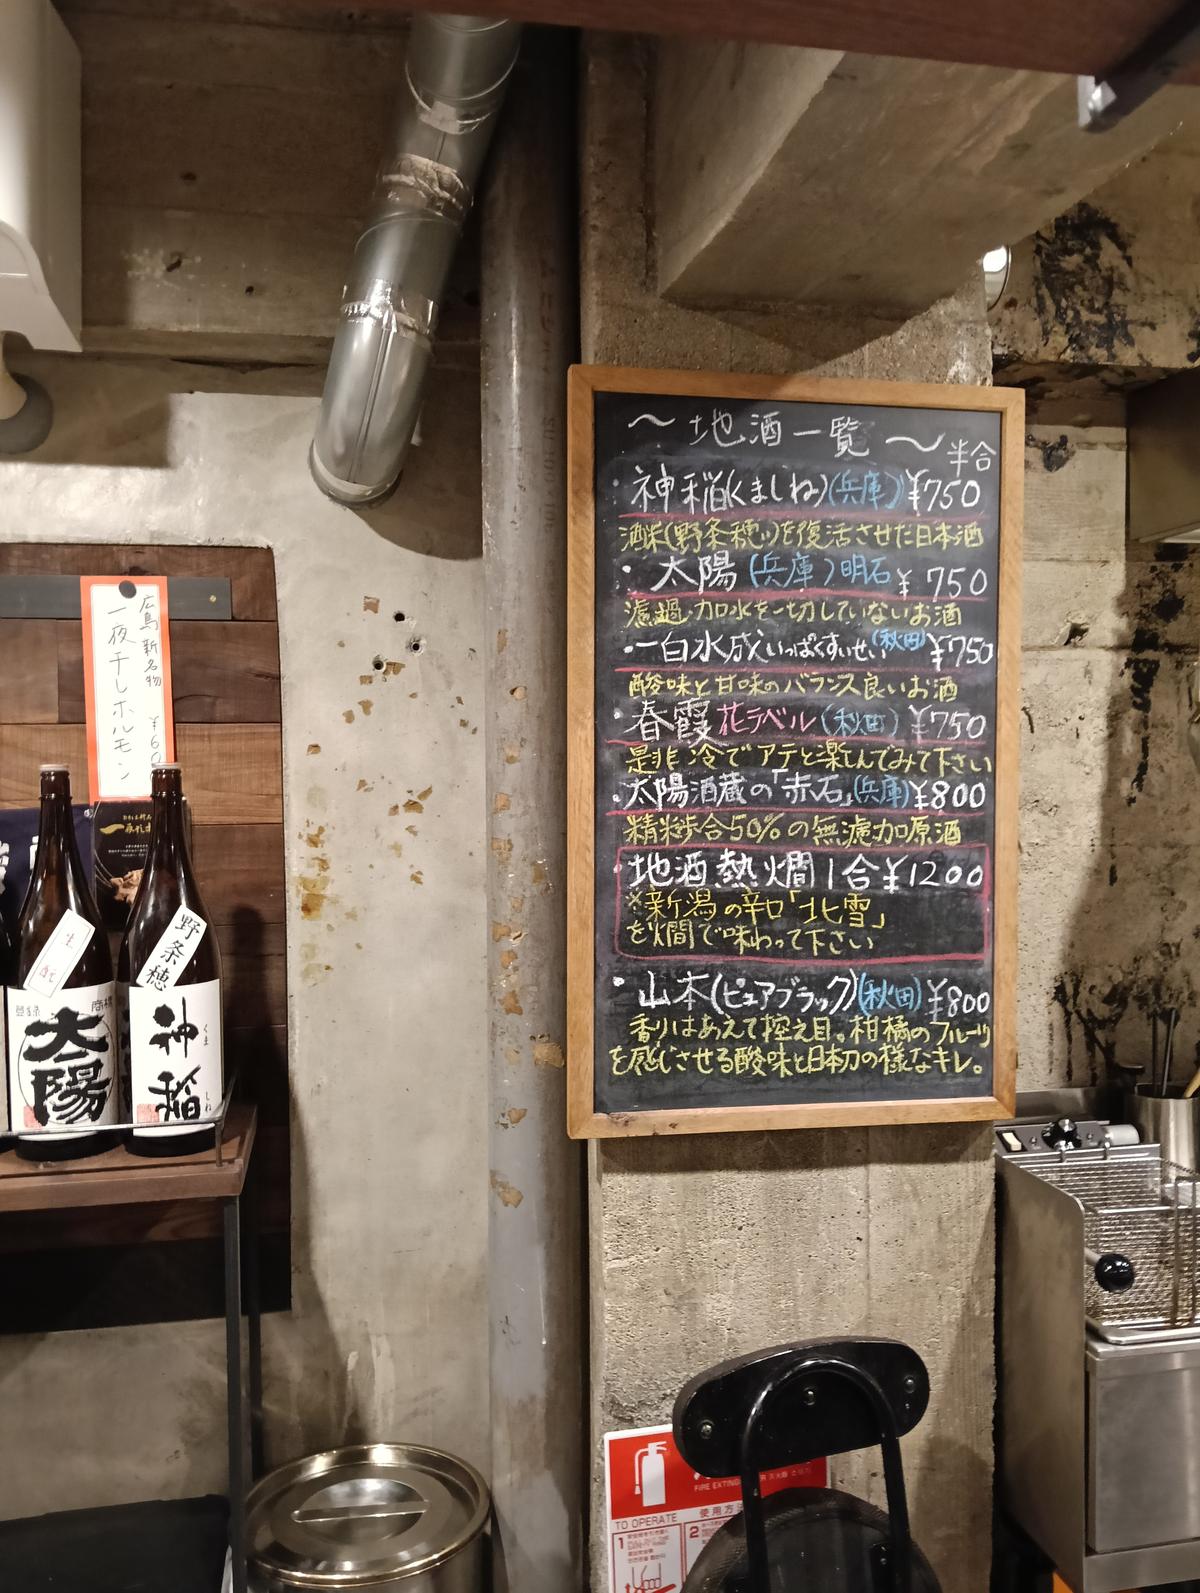 〜地酒一覧〜
半合
・神稲(くましね)(兵庫)¥750
酒米(野条穂)を復活させた日本酒
・太陽(兵庫)明石¥750
濾過・加水を一切していないお酒
・一白水成いっぱくすいせい(秋田)¥750
酸味と甘味のバランス良いお酒
・春霞花ラベル(秋田)¥750
是非冷でアテと楽しんでみて下さい
・太陽酒蔵の「赤石」(兵庫)¥800
精米歩合50%の無濾加原酒
・地酒熱燗1合¥1200
※新潟の辛口「北雪」
を燗で味わって下さい
・山本(ピュアブラック)(秋田)¥800
香りはあえて控え目。柑橘のフルーツ
を感じさせる酸味と日本刀の様なキレ。
広島新名物
一夜干しホルモン
¥60
生
酛
登録
商標
太陽
野条穂
神稲
くま
しね
FIRE EXTING
TO OPERATE
使用方
1
2